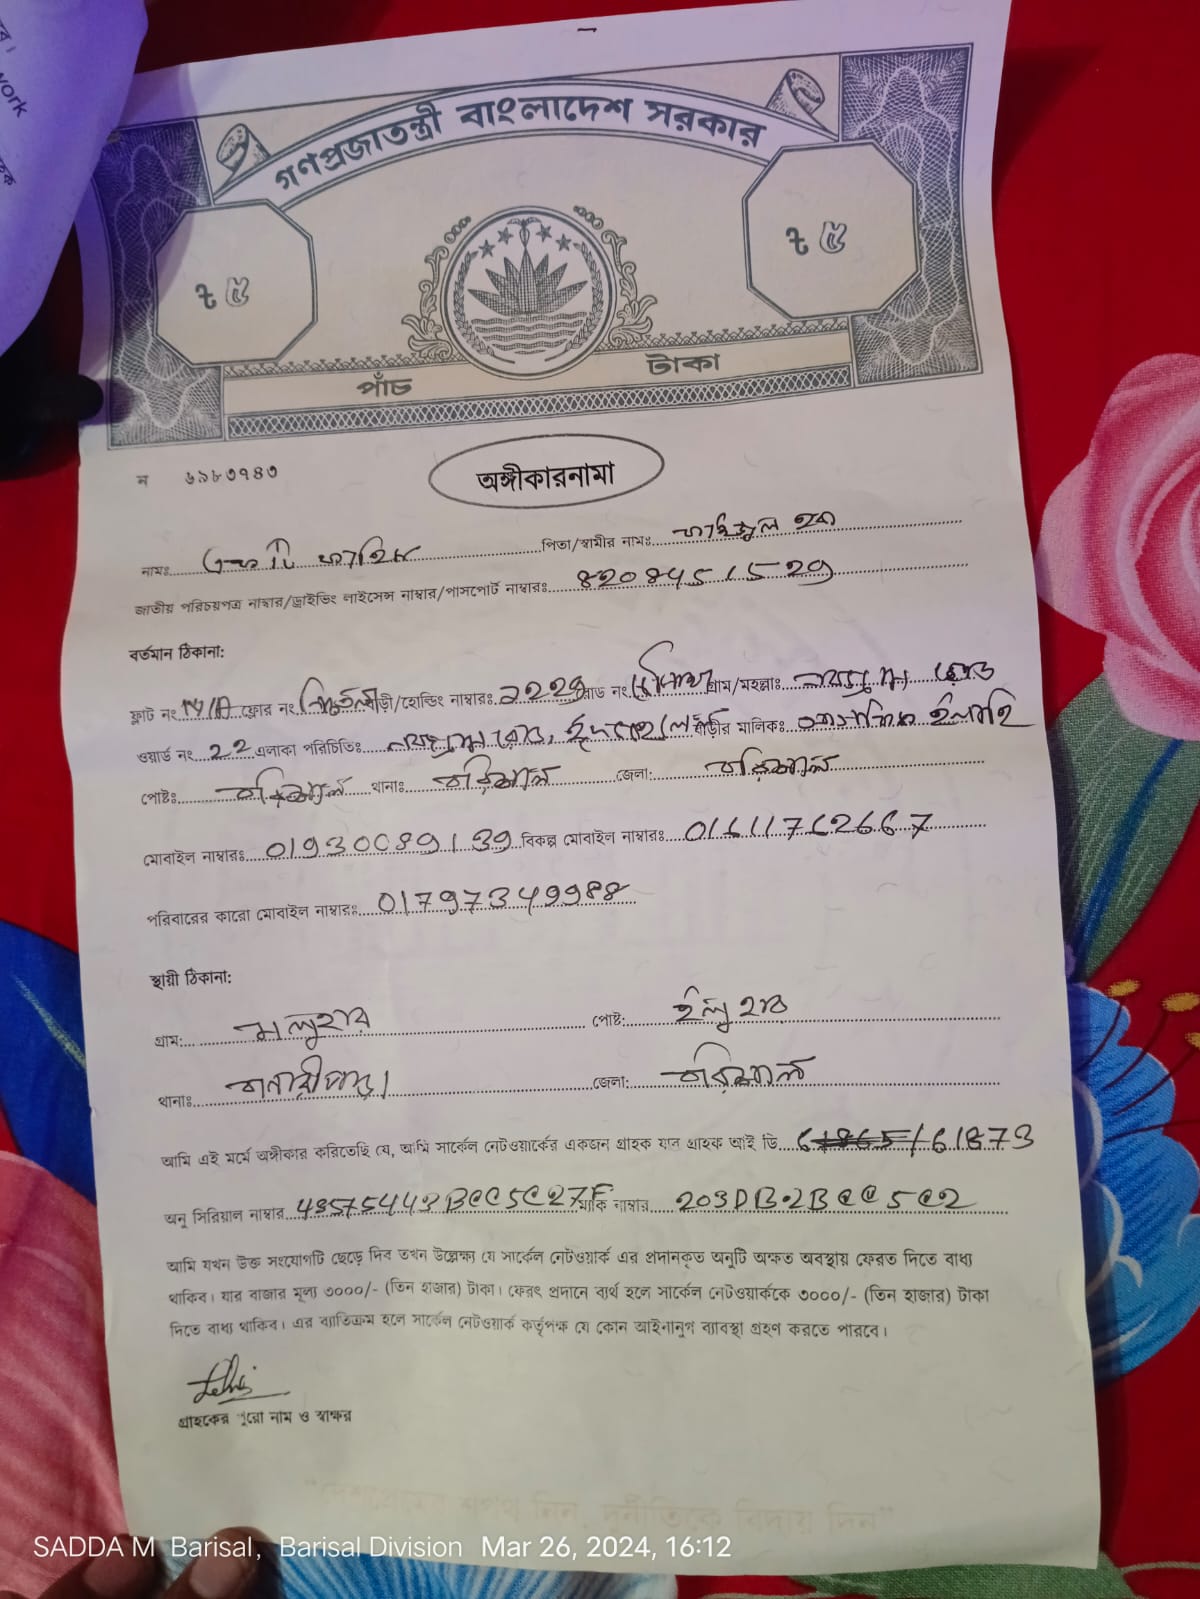 গণপ্রজাতন্ত্রী বাংলাদেশ সরকার
৳ ৫ ৳ ৫
পাঁচ টাকা
ন ৬৯৮৩৭৪৩
অঙ্গীকারনামা
নামঃ পিতা/স্বামীর নামঃ হক
জাতীয় পরিচয়পত্র নাম্বার/ড্রাইভিং লাইসেন্স নাম্বার/পাসপোর্ট নাম্বারঃ 8208451529
বর্তমান ঠিকানা:
ফ্লাট নং N/A ফ্লোর নং বাড়ী/হোল্ডিং নাম্বারঃ 2229 রোড নং গ্রাম/মহল্লাঃ রোড
ওয়ার্ড নং 22 এলাকা পরিচিতিঃ রোড, বাড়ীর মালিকঃ
পোষ্টঃ বরিশাল থানাঃ বরিশাল জেলা: বরিশাল
মোবাইল নাম্বারঃ 01930089139 বিকল্প মোবাইল নাম্বারঃ 01611762667
পরিবারের কারো মোবাইল নাম্বারঃ 01797349988
স্থায়ী ঠিকানা:
গ্রাম: মলুহার পোষ্ট: ইলুহার
থানাঃ বানারীপাড়া জেলা: বরিশাল
আমি এই মর্মে অঙ্গীকার করিতেছি যে, আমি সার্কেল নেটওয়ার্কের একজন গ্রাহক যার গ্রাহক আই ডি 61873
অনু সিরিয়াল নাম্বার 48575443BCC5C27F ম্যাক নাম্বার 203DB2BCC5C2
আমি যখন উক্ত সংযোগটি ছেড়ে দিব তখন উল্লেক্ষ্য যে সার্কেল নেটওয়ার্ক এর প্রদানকৃত অনুটি অক্ষত অবস্থায় ফেরত দিতে বাধ্য
থাকিব। যার বাজার মূল্য ৩০০০/- (তিন হাজার) টাকা। ফেরৎ প্রদানে ব্যর্থ হলে সার্কেল নেটওয়ার্ককে ৩০০০/- (তিন হাজার) টাকা
দিতে বাধ্য থাকিব। এর ব্যাতিক্রম হলে সার্কেল নেটওয়ার্ক কর্তৃপক্ষ যে কোন আইনানুগ ব্যাবস্থা গ্রহণ করতে পারবে।
গ্রাহকের পুরো নাম ও স্বাক্ষর
"দেশপ্রেমের শপথ নিন, দুর্নীতিকে বিদায় দিন"
SADDA M Barisal, Barisal Division Mar 26, 2024, 16:12